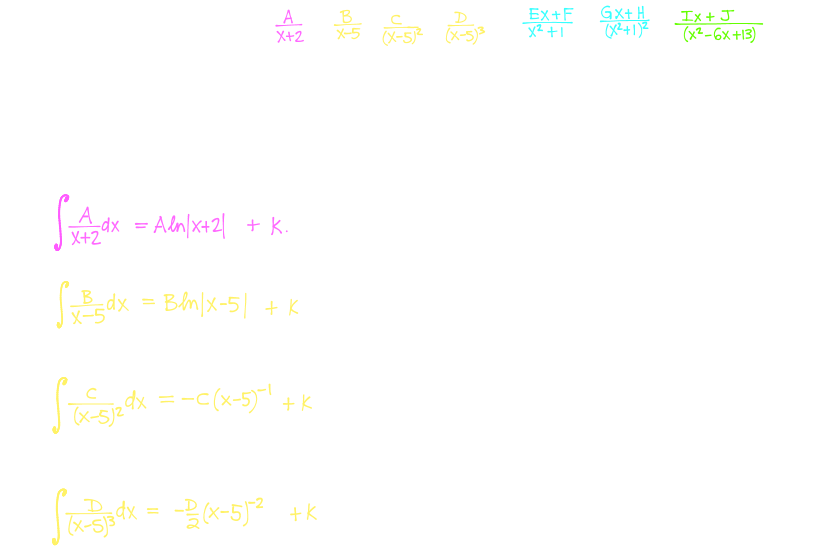 A/(x+2) B/(x-5) C/(x-5)² D/(x-5)³ (Ex+F)/(x²+1) (Gx+H)/(x²+1)² (Ix+J)/(x²-6x+13)
∫ A/(x+2) dx = A ln|x+2| + K.
∫ B/(x-5) dx = B ln|x-5| + K
∫ C/(x-5)² dx = -C(x-5)⁻¹ + K
∫ D/(x-5)³ dx = -D/2 (x-5)⁻² + K